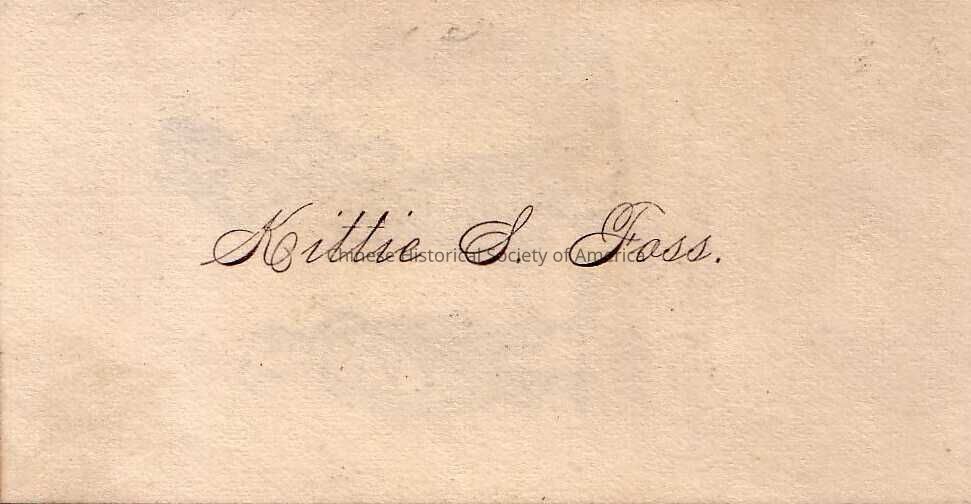 Kittie S. Foss.
Chinese Historical Society of America